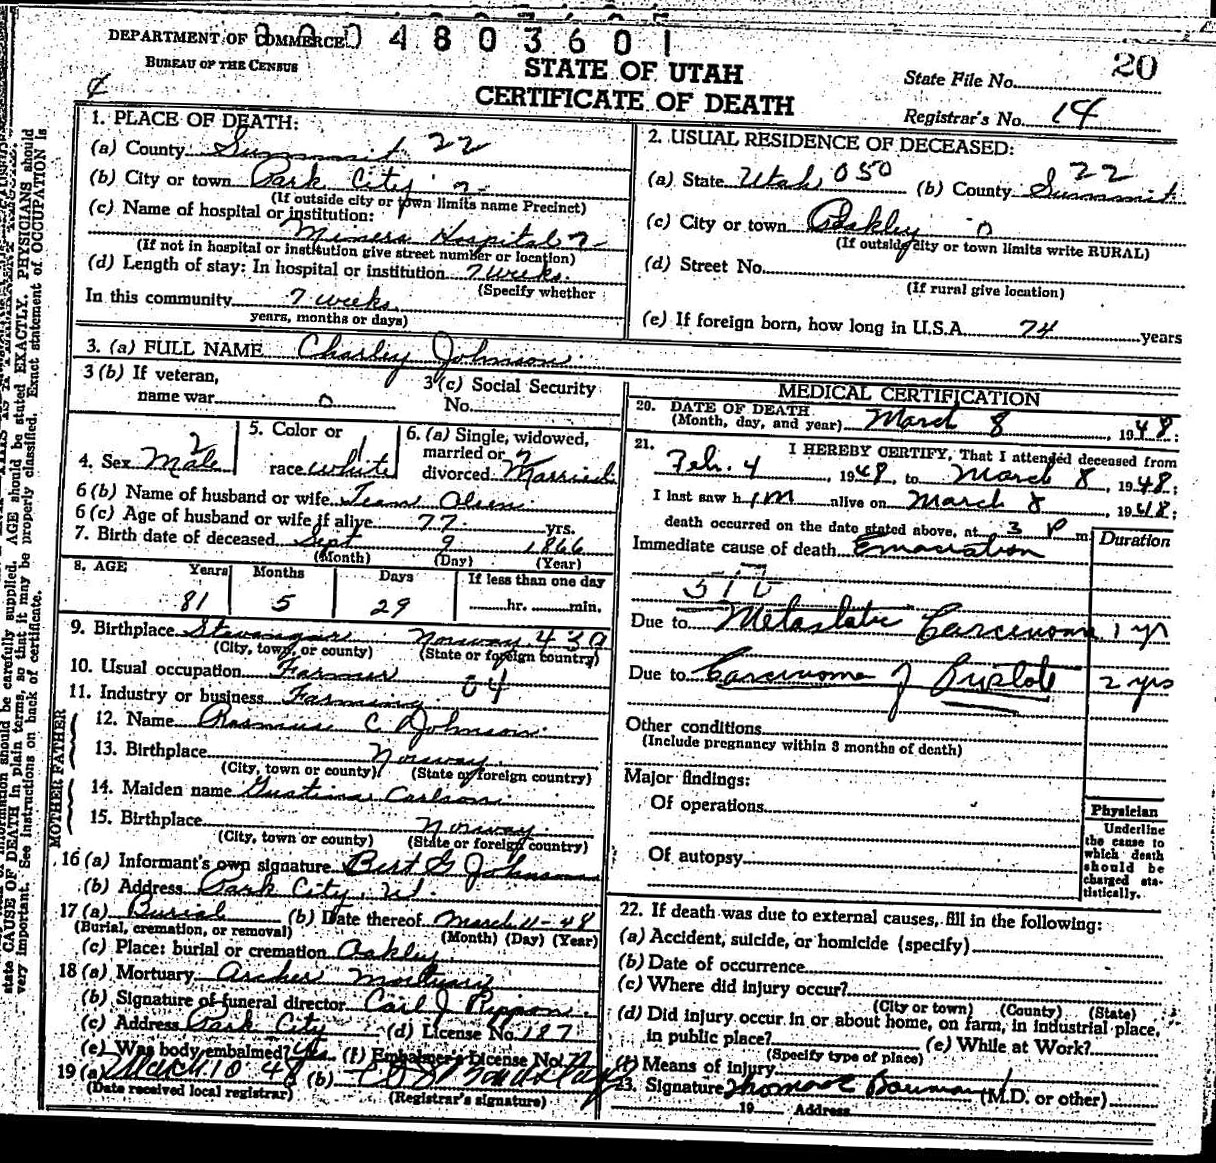 DEPARTMENT OF COMMERCE
BUREAU OF THE CENSUS
4803601
STATE OF UTAH
CERTIFICATE OF DEATH
20
State File No.
Registrar's No. 14
1. PLACE OF DEATH:
(a) County Summit 22
(b) City or town Park City 2
(If outside city or town limits name Precinct)
(c) Name of hospital or institution:
Miners Hospital 2
(If not in hospital or institution give street number or location)
(d) Length of stay: In hospital or institution 7 weeks.
(Specify whether
In this community 7 weeks.
years, months or days)
2. USUAL RESIDENCE OF DECEASED:
(a) State Utah 050 (b) County Summit 22
(c) City or town Oakley 0
(If outside city or town limits write RURAL)
(d) Street No.
(If rural give location)
(e) If foreign born, how long in U.S.A. 74 years
3. (a) FULL NAME Charley Johnson
3 (b) If veteran, name war 0
3 (c) Social Security No.
4. Sex Male 2
5. Color or race white 1
6. (a) Single, widowed, married or divorced Married 2
6 (b) Name of husband or wife Olsen
6 (c) Age of husband or wife if alive 77 yrs.
7. Birth date of deceased Sept 9 1866
(Month) (Day) (Year)
8. AGE Years Months Days If less than one day
81 5 29 hr. min.
9. Birthplace Stavanger Norway 430
(City, town, or county) (State or foreign country)
10. Usual occupation Farmer 04
11. Industry or business Farming
FATHER
12. Name Rasmus C Johnson
13. Birthplace Norway
(City, town or county) (State or foreign country)
MOTHER
14. Maiden name Gustina Carlson
15. Birthplace Norway
(City, town or county) (State or foreign country)
16 (a) Informant's own signature Bert G Johnson
(b) Address Park City, Ut.
17 (a) Burial (b) Date thereof March 11-48
(Burial, cremation, or removal) (Month) (Day) (Year)
(c) Place: burial or cremation Oakley
18 (a) Mortuary Archer Mortuary
(b) Signature of funeral director Carl J
(c) Address Park City (d) License No. 187
(e) Was body embalmed? Yes (f) Embalmer's License No.
19 (a) March 10 48 (b)
(Date received local registrar) (Registrar's signature)
MEDICAL CERTIFICATION
20. DATE OF DEATH
(Month, day, and year) March 8, 1948;
21. I HEREBY CERTIFY, That I attended deceased from
Feb. 4, 1948, to March 8, 1948;
I last saw him alive on March 8, 1948;
death occurred on the date stated above, at 3 P m.
Duration
Immediate cause of death Emaciation
Due to Metastatic Carcinoma 1 yr
Due to Carcinoma of Prostate 2 yrs
Other conditions
(Include pregnancy within 3 months of death)
Major findings:
Of operations
Of autopsy
Physician
Underline
the cause to
which death
should be
charged sta-
tistically.
22. If death was due to external causes, fill in the following:
(a) Accident, suicide, or homicide (specify)
(b) Date of occurrence
(c) Where did injury occur?
(City or town) (County) (State)
(d) Did injury occur in or about home, on farm, in industrial place,
in public place? (e) While at Work?
(Specify type of place)
(f) Means of injury
23. Signature (M.D. or other)
19 Address
information should be carefully supplied. AGE should be stated EXACTLY. PHYSICIANS should
state CAUSE OF DEATH in plain terms, so that it may be properly classified. Exact statement of OCCUPATION is
very important. See instructions on back of certificate.